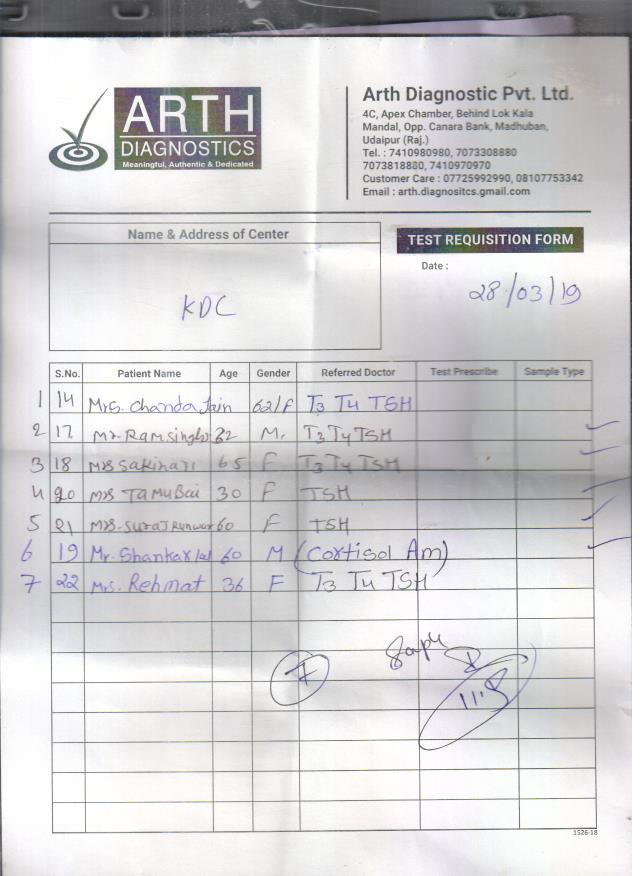 ARTH
DIAGNOSTICS
Meaningful, Authentic & Dedicated
Arth Diagnostic Pvt. Ltd.
4C, Apex Chamber, Behind Lok Kala
Mandal, Opp. Canara Bank, Madhuban,
Udaipur (Raj.)
Tel. : 7410980980, 7073308880
7073818880, 7410970970
Customer Care : 07725992990, 08107753342
Email : arth.diagnositcs.gmail.com
Name & Address of Center
KDC
TEST REQUISITION FORM
Date :
28/03/19
S.No. Patient Name Age Gender Referred Doctor Test Prescribe Sample Type
1 14 Mrs. Chanda Jain 62/F T3 T4 TSH
2 17 Mr. Ramsingh 62 M. T3 T4 TSH
3 18 Mrs 65 F T3 T4 TSH
4 20 Mrs TamuBai 30 F TSH
5 21 Mrs. Suraj Kunwar 60 F TSH
6 19 Mr. Shankarlal 60 M (Cortisol Am)
7 22 Mrs. Rehmat 36 F T3 T4 TSH
7
1526-18